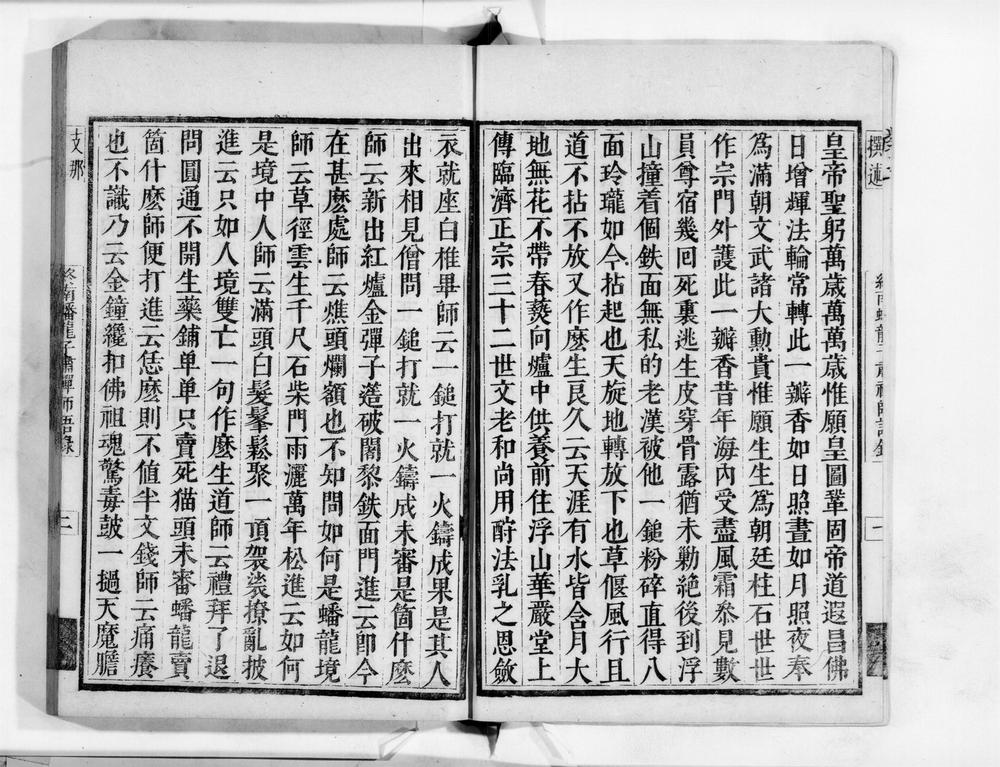 撰述
皇帝聖躬萬歲萬萬歲惟願皇圖鞏固帝道遐昌佛
日增輝法輪常轉此一瓣香如日照晝如月照夜奉
爲滿朝文武諸大勲貴惟願生生爲朝廷柱石世世
作宗門外護此一瓣香昔年海內受盡風霜叅見數
員尊宿幾回死裏逃生皮穿骨露猶未勦絕後到浮
山撞着個鉄面無私的老漢被他一鎚粉碎直得八
面玲瓏如今拈起也天旋地轉放下也草偃風行且
道不拈不放又作麼生良久云天涯有水皆含月大
地無花不帶春爇向爐中供養前住浮山華嚴堂上
傳臨濟正宗三十二世文老和尚用酧法乳之恩斂
衣就座白椎畢師云一鎚打就一火鑄成果是其人
出來相見僧問一鎚打就一火鑄成未審是箇什麼
師云新出紅爐金彈子簉破闍黎鉄面門進云卽今
在甚麼處師云燋頭爛額也不知問如何是蟠龍境
師云草徑雲生千尺石柴門雨灑萬年松進云如何
是境中人師云滿頭白髮鬔鬆聚一頂袈裟撩亂披
進云只如人境雙亡一句作麼生道師云禮拜了退
問圓通不開生藥鋪單单只賣死猫頭未審蟠龍賣
箇什麼師便打進云恁麼則不値半文錢師云痛癢
也不識乃云金鐘纔扣佛祖魂驚毒鼓一撾天魔膽
支那
終南蟠龍子肅禪師語錄
二